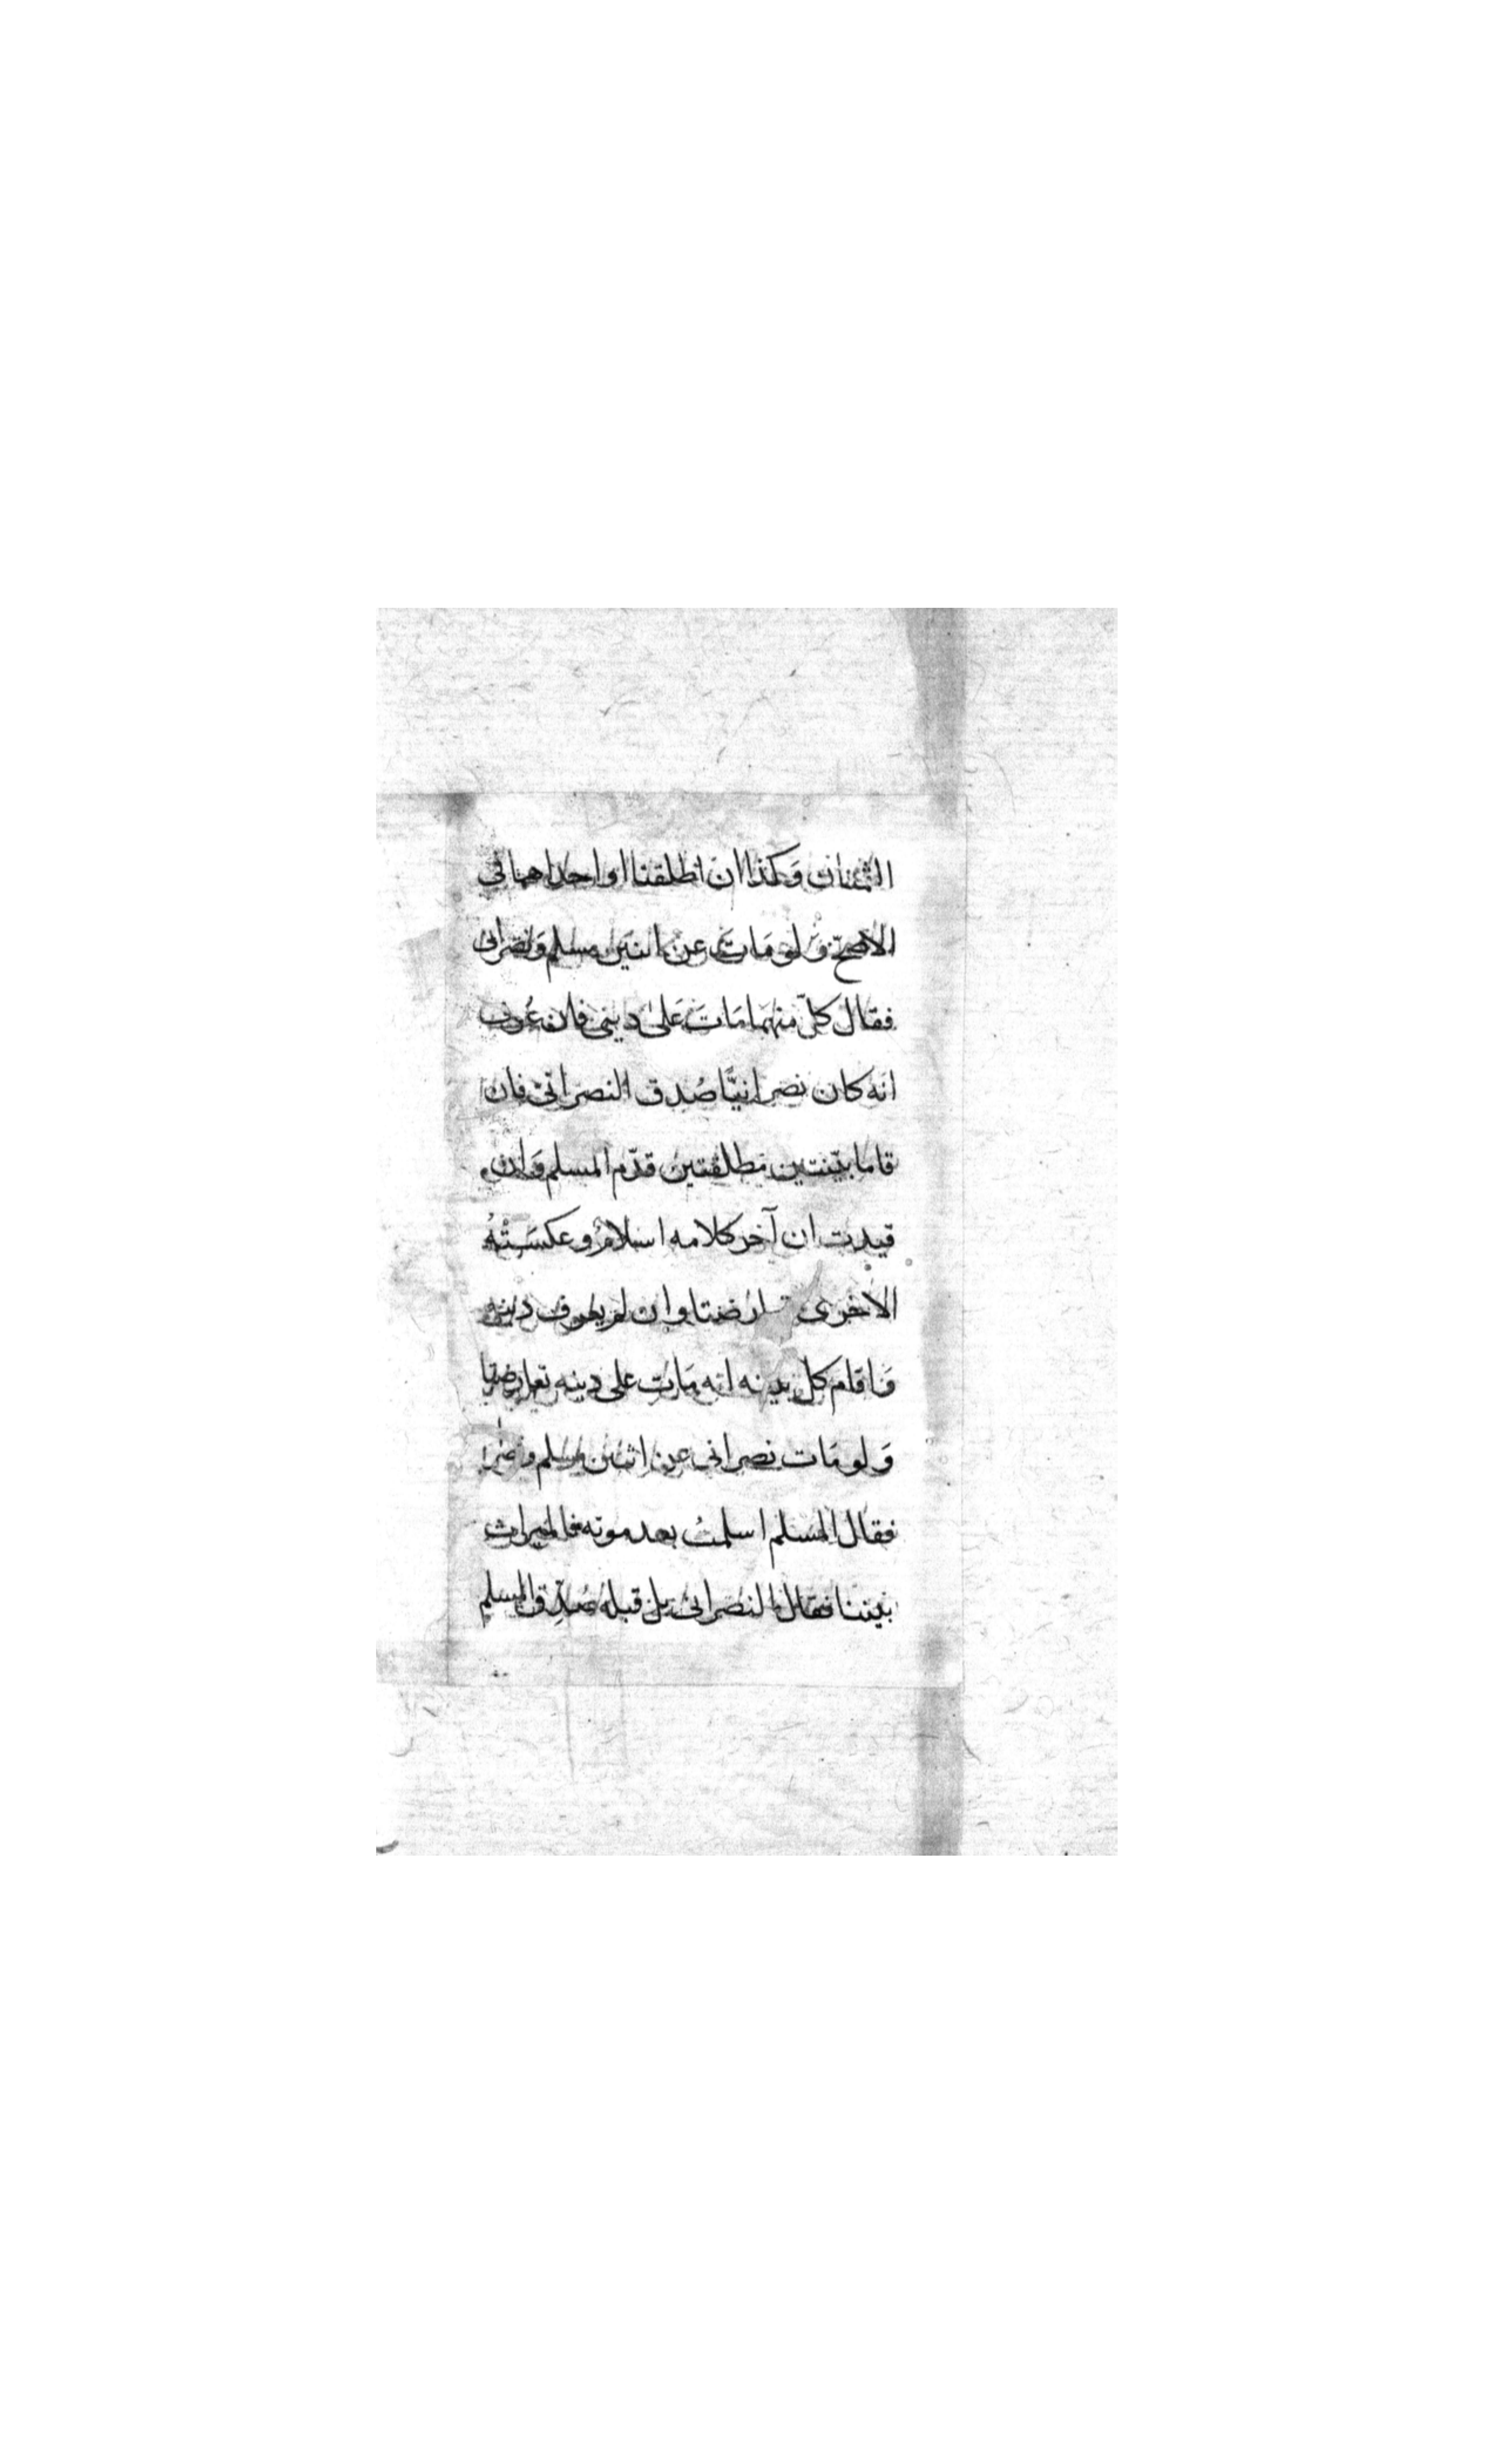 الثمنان وَكذا ان اطلقتا او احداهما في
الاصحّ وَ لو مَات عن ابنين مسلم وَنصراني
فقال كلّ منهمَا مَاتَ عَلىٰ ديني فان عُرف
انه كان نصرانيًّا صُدق النصرانيّ فان
قاما بيّنتين مطلقتين قدّم المسلم وَان
قيدت ان آخر كلامه اسلامُ وعكسَتْهُ
الاخرى تعارضتا وان لم يعرف دينه
وَاقام كل بينه انه مَات على دينه تعارضتا
وَ لو مَات نصراني عن اثنين مسلم و
فقال المسلم اسلمتُ بعد موته فالميراث
بيننا فقال النصراني بل قبله صُدّق المسلم